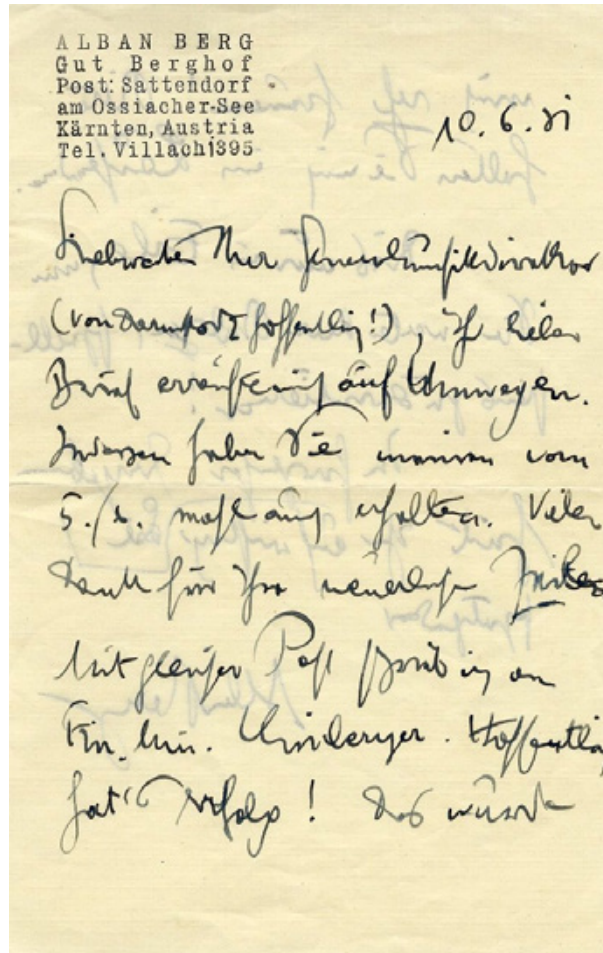 ALBAN BERG
Gut Berghof
Post: Sattendorf
am Ossiacher-See
Kärnten, Austria
Tel. Villach 1395
10. 6. 31
Ihr Generalmusikdirektor
(von Darmstadt hoffentlich!), Ihr lieber
Brief erreichte mich auf Umwegen.
Indessen haben Sie meinen vom
5./6. wohl auch erhalten. Vielen
Dank für Ihre neuerlichen Zeilen
Mit gleicher Post schrieb ich an
Fin. Min. Hoffentlich
hat's Erfolg! Das würde